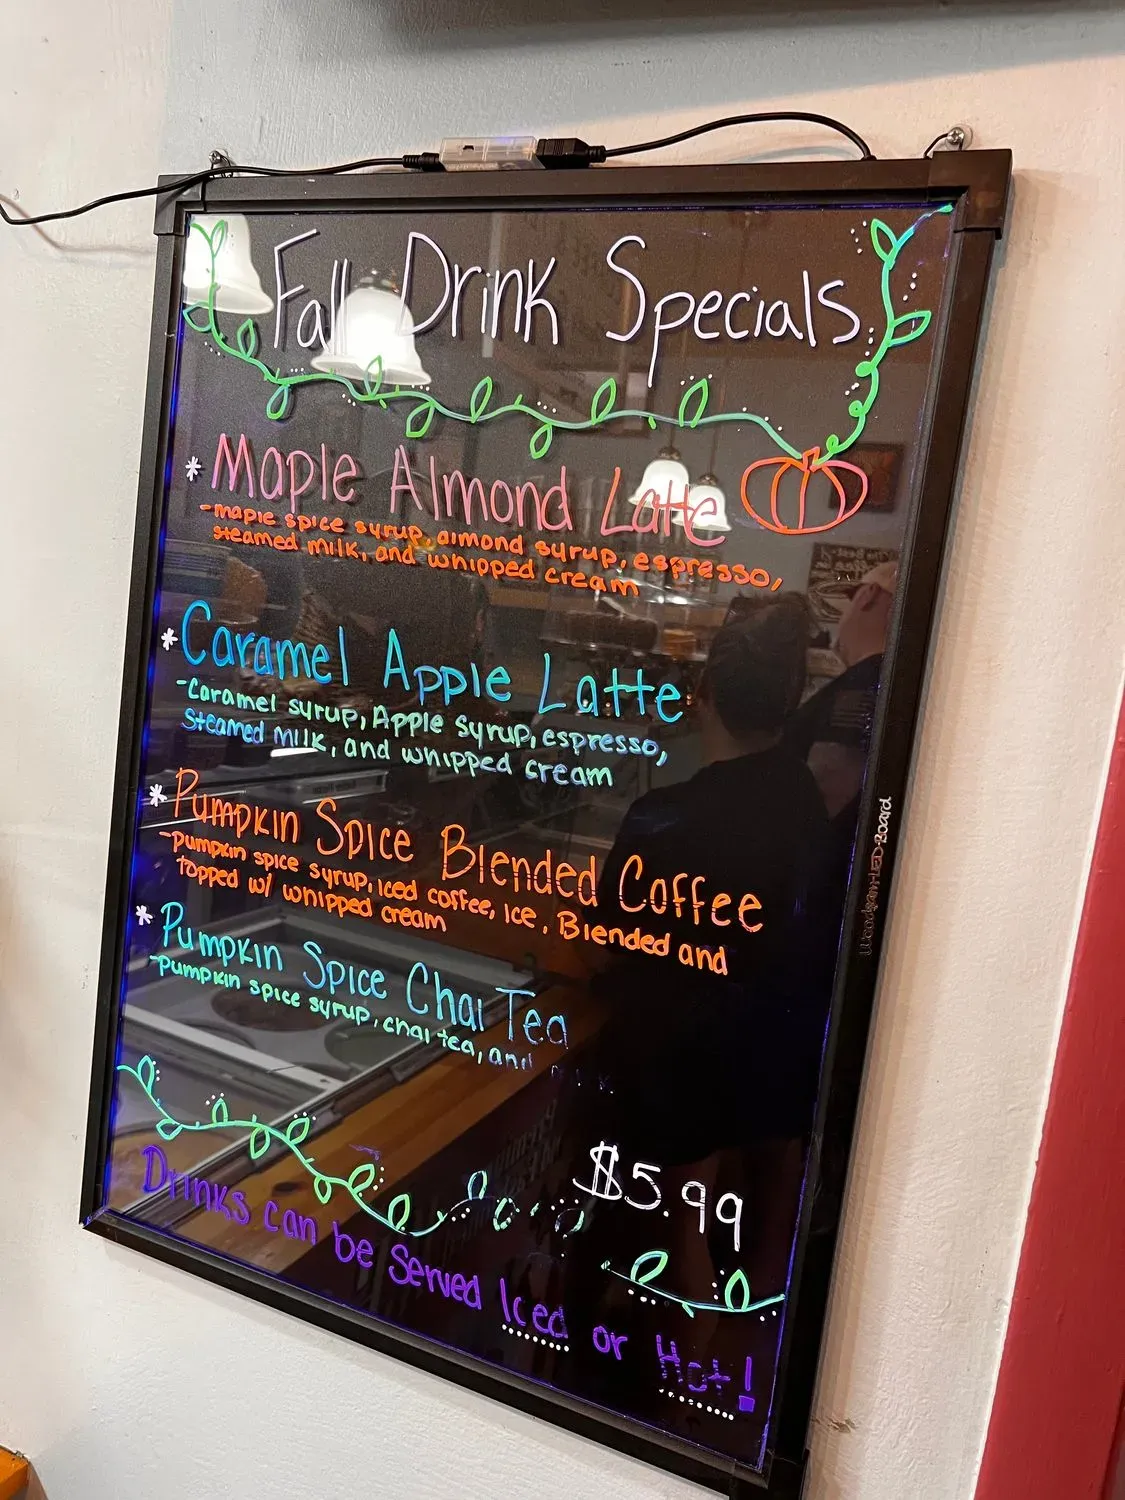 Fall Drink Specials
* Maple Almond Latte
-maple spice syrup, almond syrup, espresso,
steamed milk, and whipped cream
* Caramel Apple Latte
-Caramel syrup, Apple syrup, espresso,
Steamed milk, and whipped cream
* Pumpkin Spice Blended Coffee
-pumpkin spice syrup, iced coffee, ice. Blended and
topped w/ whipped cream
* Pumpkin Spice Chai Tea
-pumpkin spice syrup, chai tea, and
$5.99
Drinks can be Served Iced or Hot!
Woodsam-LED-Board